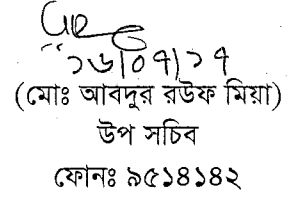 ১৬|০৭|১৭
(মোঃ আবদুর রউফ মিয়া)
উপ সচিব
ফোনঃ ৯৫১৪১৪২